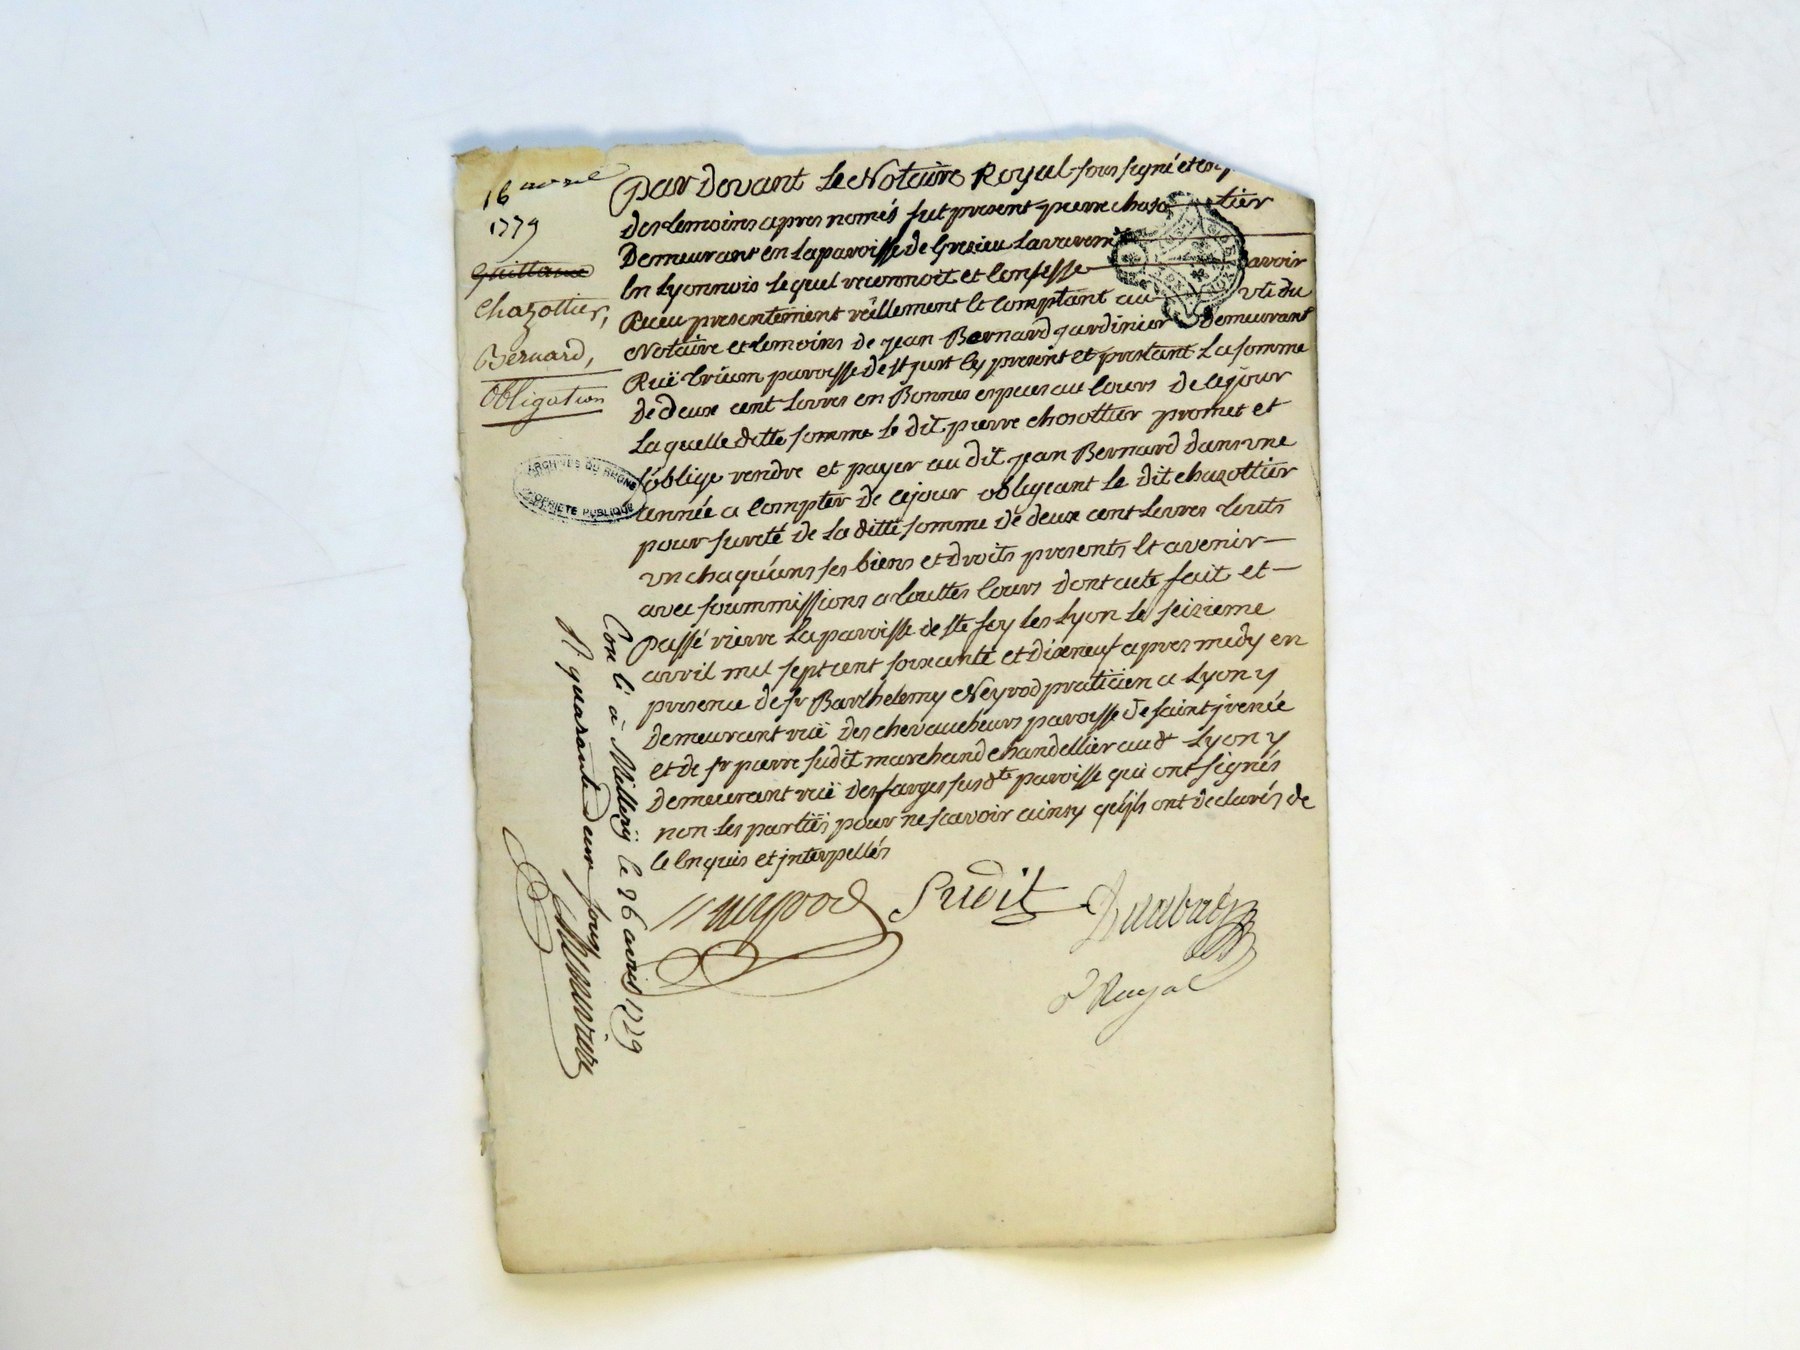 16 avril
1779
Guillaume
Chazottier,
Bernard,
Obligation
ARCHIVES DU RHONE
PROPRIETE PUBLIQUE
Par devant le Notaire Royal sous signé et en p
des temoins apres només fut present pierre chaso tier
Demeurant en la paroisse de Gresieu Lavarenne
en Lyonnois lequel reconnoit et confesse avoir
Receu presentement réellement et comptant au du
Notaire et temoins de jean Bernard jardinier Demeurant
Ruë trion paroisse de st just icy present et prestant la somme
de deux cent Livres en Bonnes especes au cours de ce jour
la quelle ditte somme le dit pierre chasottier promet et
s'oblige rendre et payer au dit jean Bernard dans une
année a compter de ce jour obligeant le dit chazottier
pour sureté de la ditte somme de deux cent Livres touts
un chaquuns ses biens et droits presents et avenir
avec soummissions a touttes cours dont acte fait et
Passé rierre la paroisse de ste foy les Lyon le seizieme
avril mil sept cent soixante et dixneuf apres midy en
presence de sr Barthelemy Neyrod praticien a Lyon y
demeurant ruë des chevaucheurs paroisse de saint jrenée
et de sr pierre sudit marchand chandellier aud Lyon y
demeurant ruë des farges susdte paroisse qui ont signés
non les parties pour ne scavoir ainsy qu'ils ont declarés de
ce enquis et jnterpellés
Neyrod Sudit
Royal
Con li à Millery le 26 avril 1779
R quarante deux sous